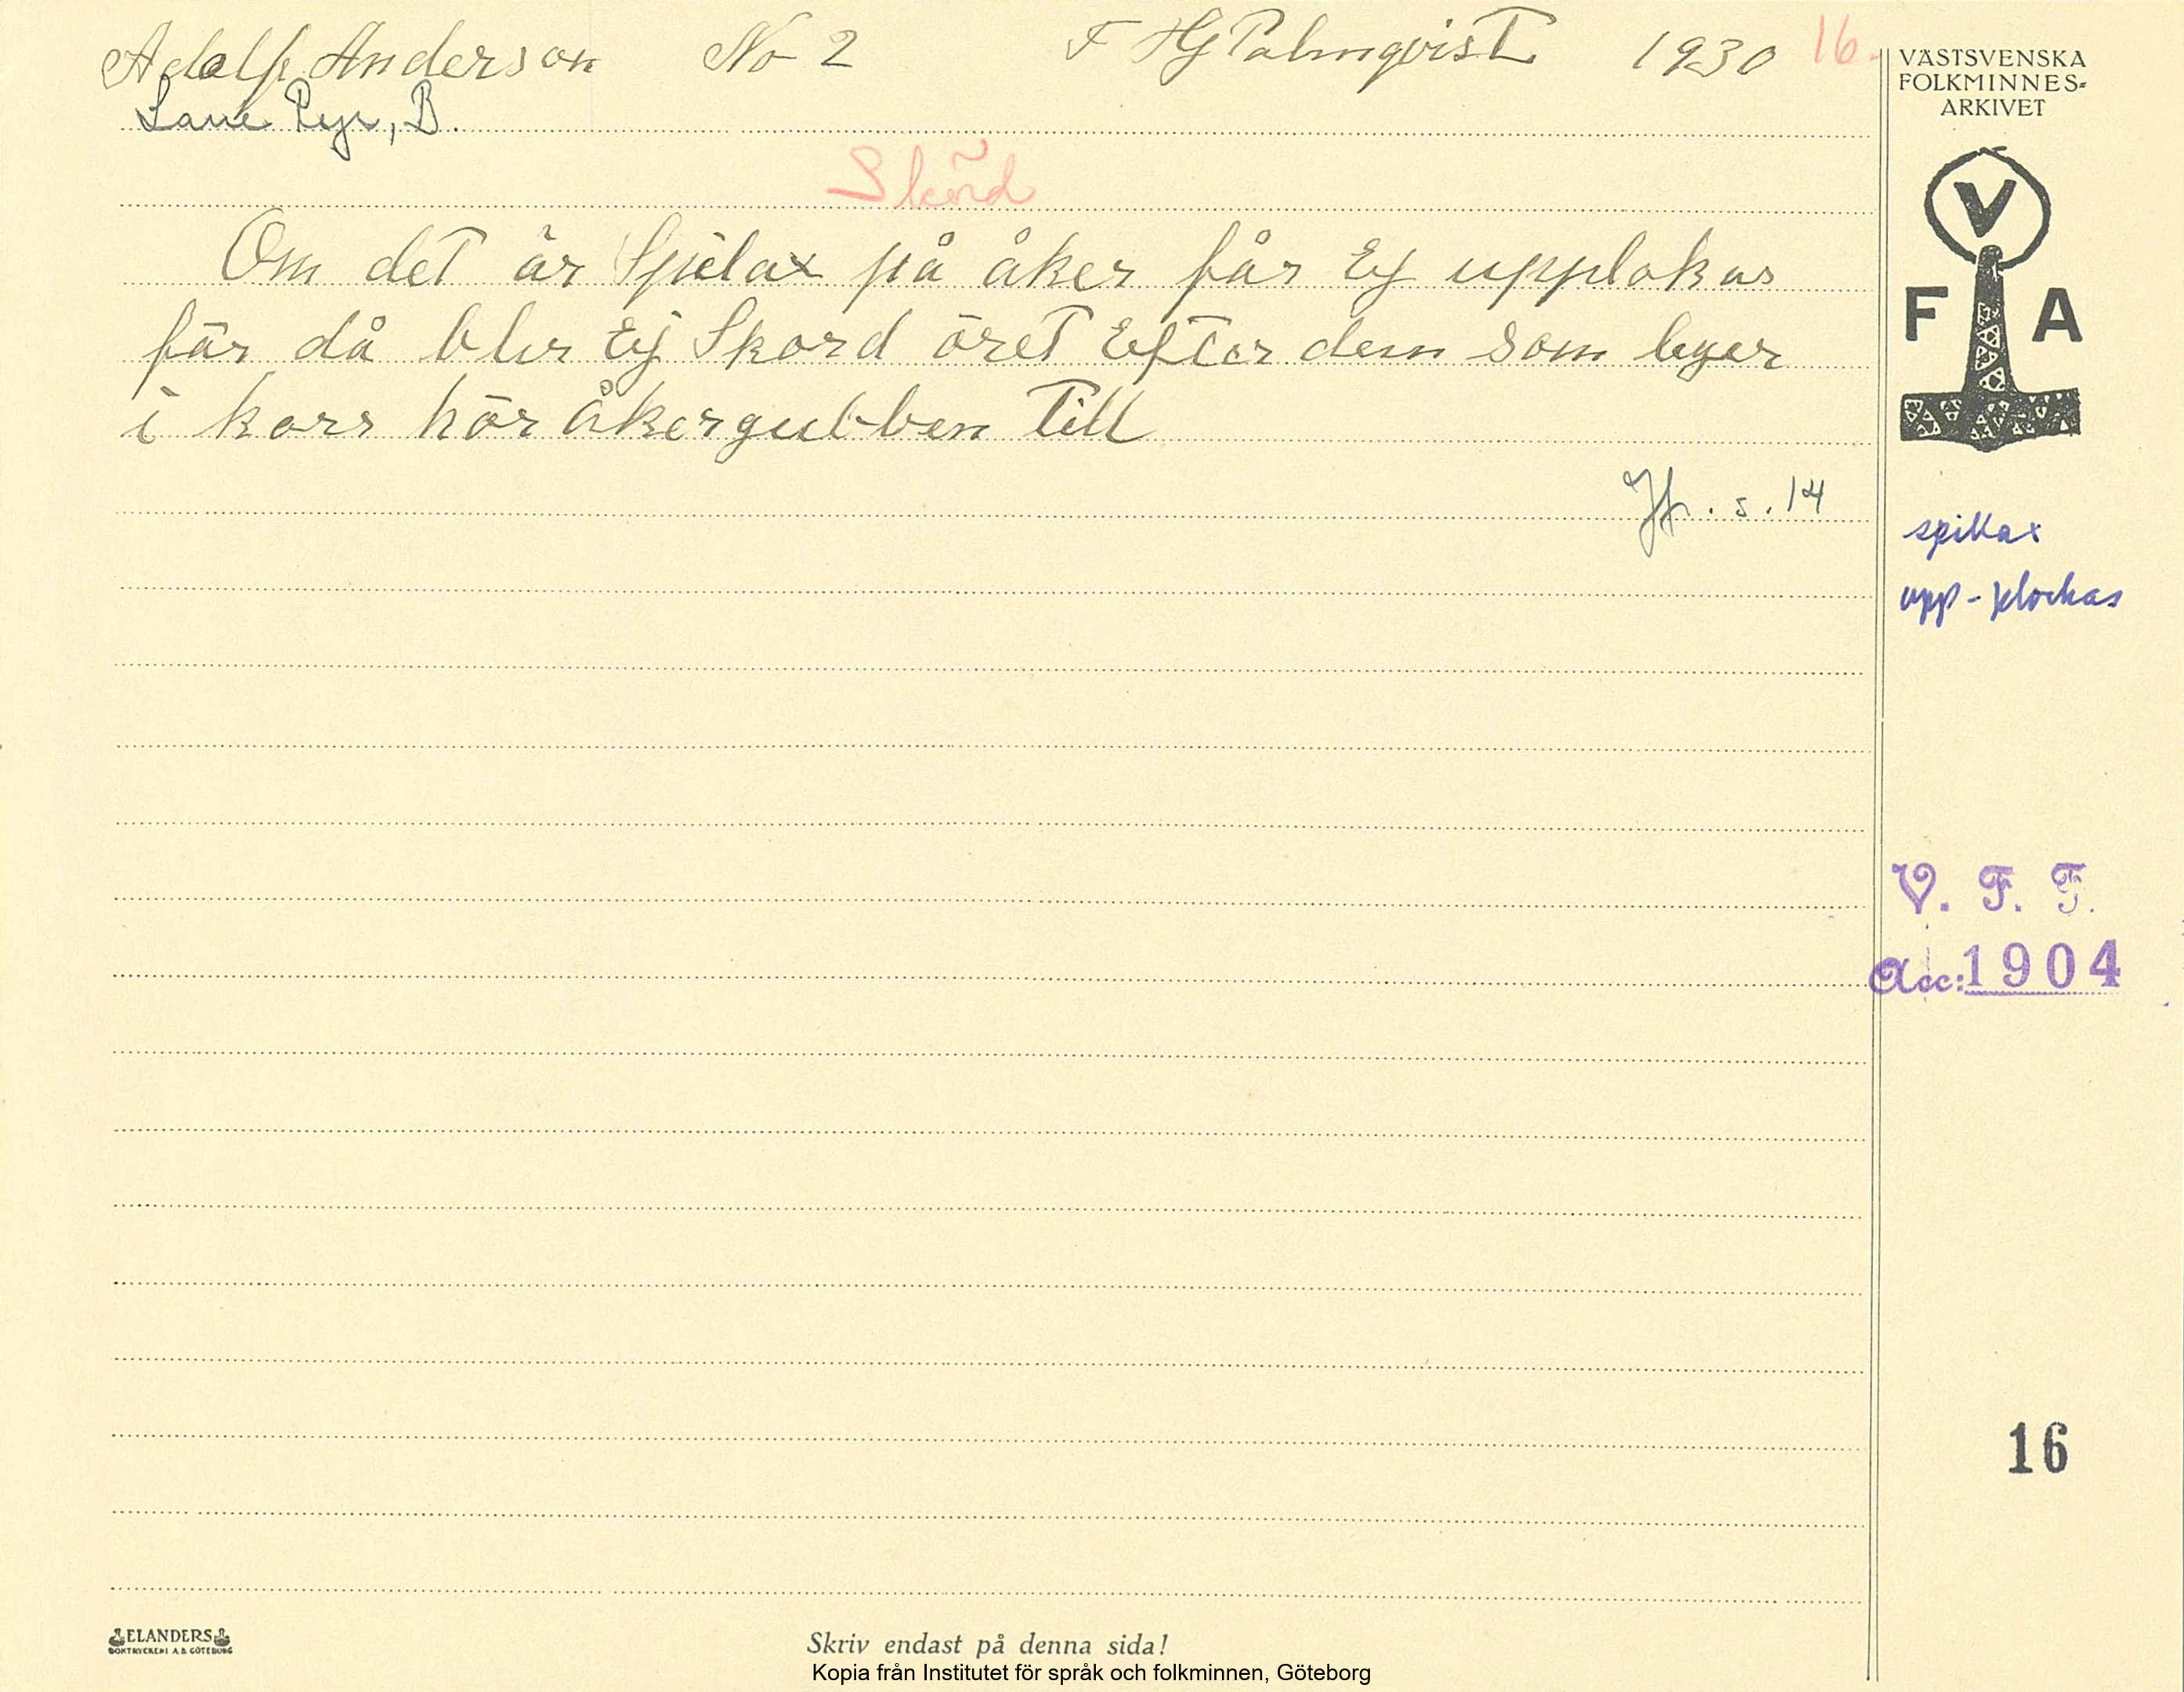 Adolf Anderson No 2 F HG Palmqvist 1930 16.
Lane Ryr, B.
Skörd
Om det är Spielax på åker får Ej upplokas
får då blir Ej Skord öret Efter dem som leger
i kors hör åkergubben Till
Jfr. s. 14
VÄSTSVENSKA
FOLKMINNES-
ARKIVET
V
F A
spillax
upp-plockas
V. F. F.
Acc: 1904
16
ELANDERS
BOKTRYCKERI A.B. GÖTEBORG
Skriv endast på denna sida!
Kopia från Institutet för språk och folkminnen, Göteborg